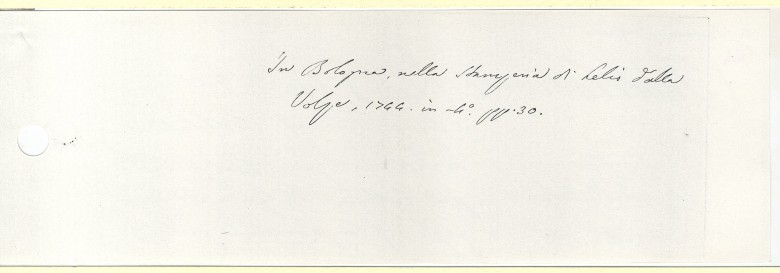 In Bologna, nella Stamperia di Lelio dalla
Volpe, 1744. in-4.° pp. 30.